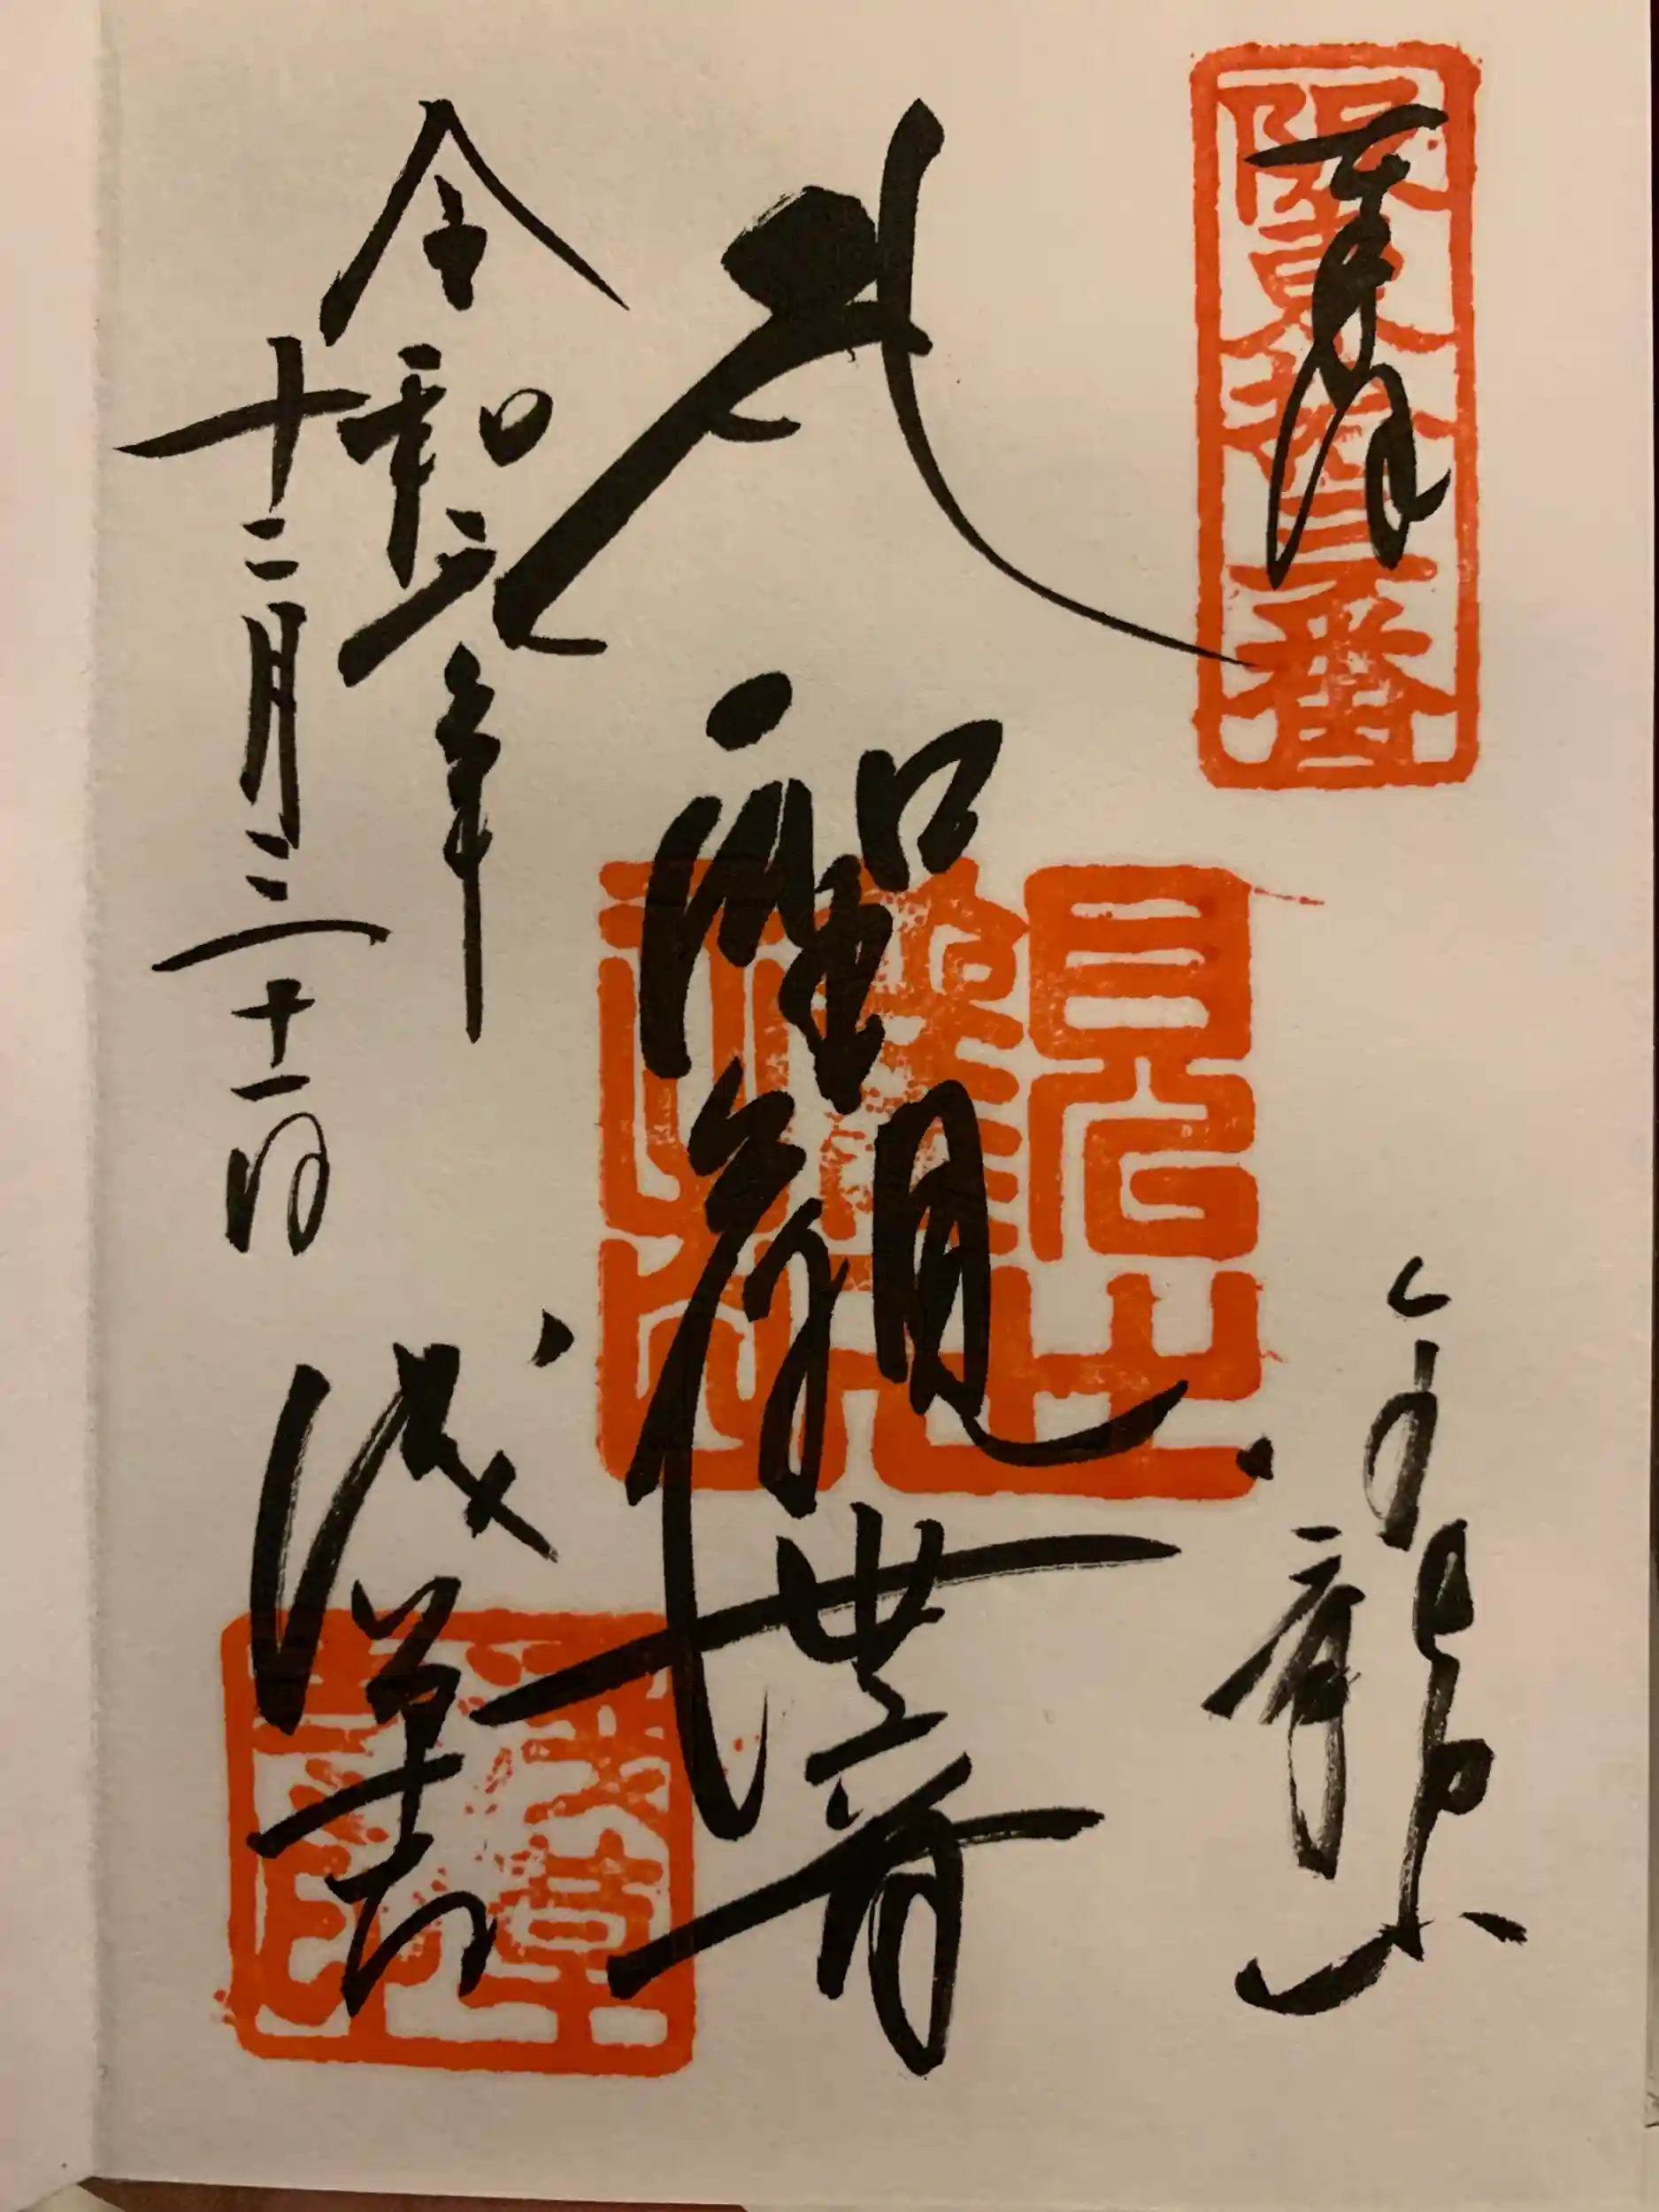 奉拝
阪東拾三番
金龍山
聖観世音
令和六年
十二月三十一日
浅草寺
浅草寺印